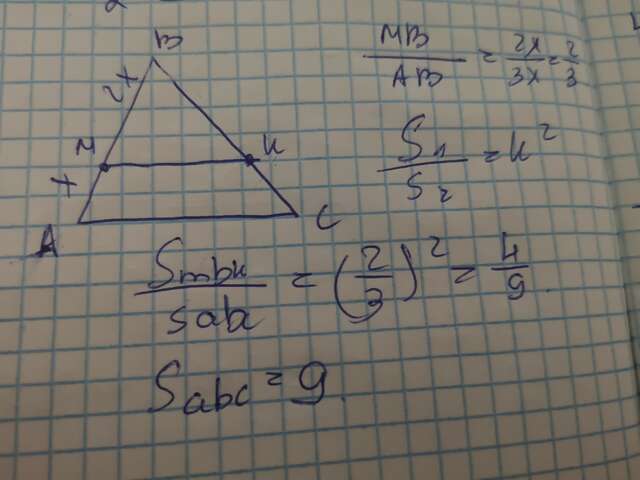 B
2x
M
K
x
A
C
MB/AB = 2x/3x = 2/3
S1/S2 = k²
Smbk/sabc = (2/3)² = 4/9.
Sabc = 9.